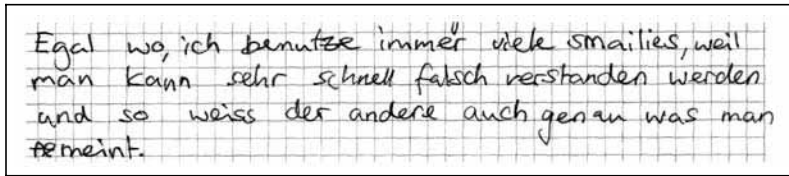 Egal wo, ich benutze immer viele smailies, weil
man kann sehr schnell falsch verstanden werden
und so weiss der andere auch genau was man
meint.